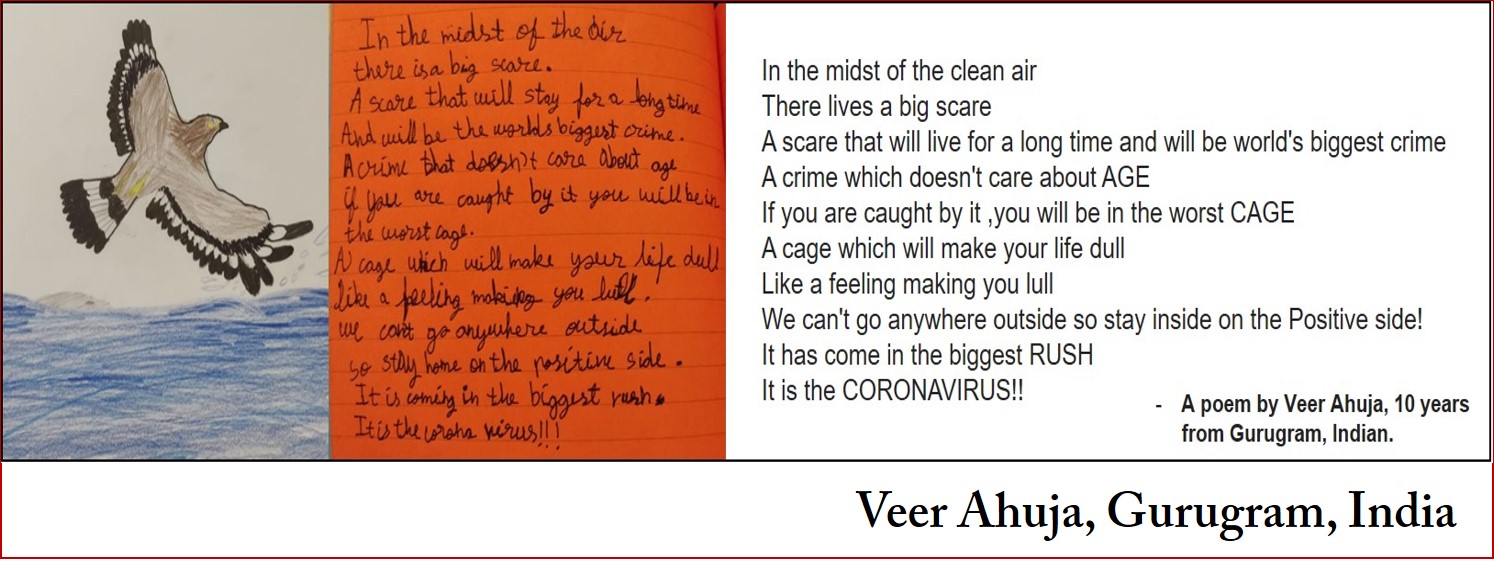 In the midst of the air
there is a big scare.
A scare that will stay for a long time
And will be the worlds biggest crime.
A crime that doesn't care about age
if you are caught by it you will be in
the worst cage.
A cage which will make your life dull
like a feeling making you lull.
we can't go anywhere outside
so stay home on the positive side.
It is coming in the biggest rush.
It is the corona virus!!!
In the midst of the clean air
There lives a big scare
A scare that will live for a long time and will be world's biggest crime
A crime which doesn't care about AGE
If you are caught by it ,you will be in the worst CAGE
A cage which will make your life dull
Like a feeling making you lull
We can't go anywhere outside so stay inside on the Positive side!
It has come in the biggest RUSH
It is the CORONAVIRUS!!
- A poem by Veer Ahuja, 10 years
from Gurugram, Indian.
Veer Ahuja, Gurugram, India